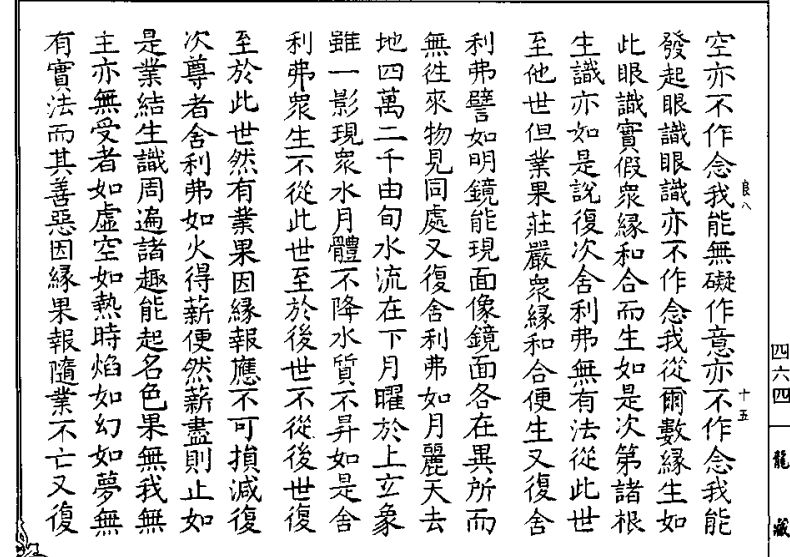 四六四
龍藏
良八
十五
空亦不作念我能無礙作意亦不作念我能
發起眼識眼識亦不作念我從爾數緣生如
此眼識實假衆緣和合而生如是次第諸根
生識亦如是說復次舍利弗無有法從此世
至他世但業果莊嚴衆緣和合便生又復舍
利弗譬如明鏡能現面像鏡面各在異所而
無徃來物見同處又復舍利弗如月麗天去
地四萬二千由旬水流在下月曜於上玄象
雖一影現衆水月體不降水質不昇如是舍
利弗衆生不從此世至於後世不從後世復
至於此世然有業果因緣報應不可損減復
次尊者舍利弗如火得薪便然薪盡則止如
是業結生識周遍諸趣能起名色果無我無
主亦無受者如虛空如熱時焰如幻如夢無
有實法而其善惡因緣果報隨業不亡又復